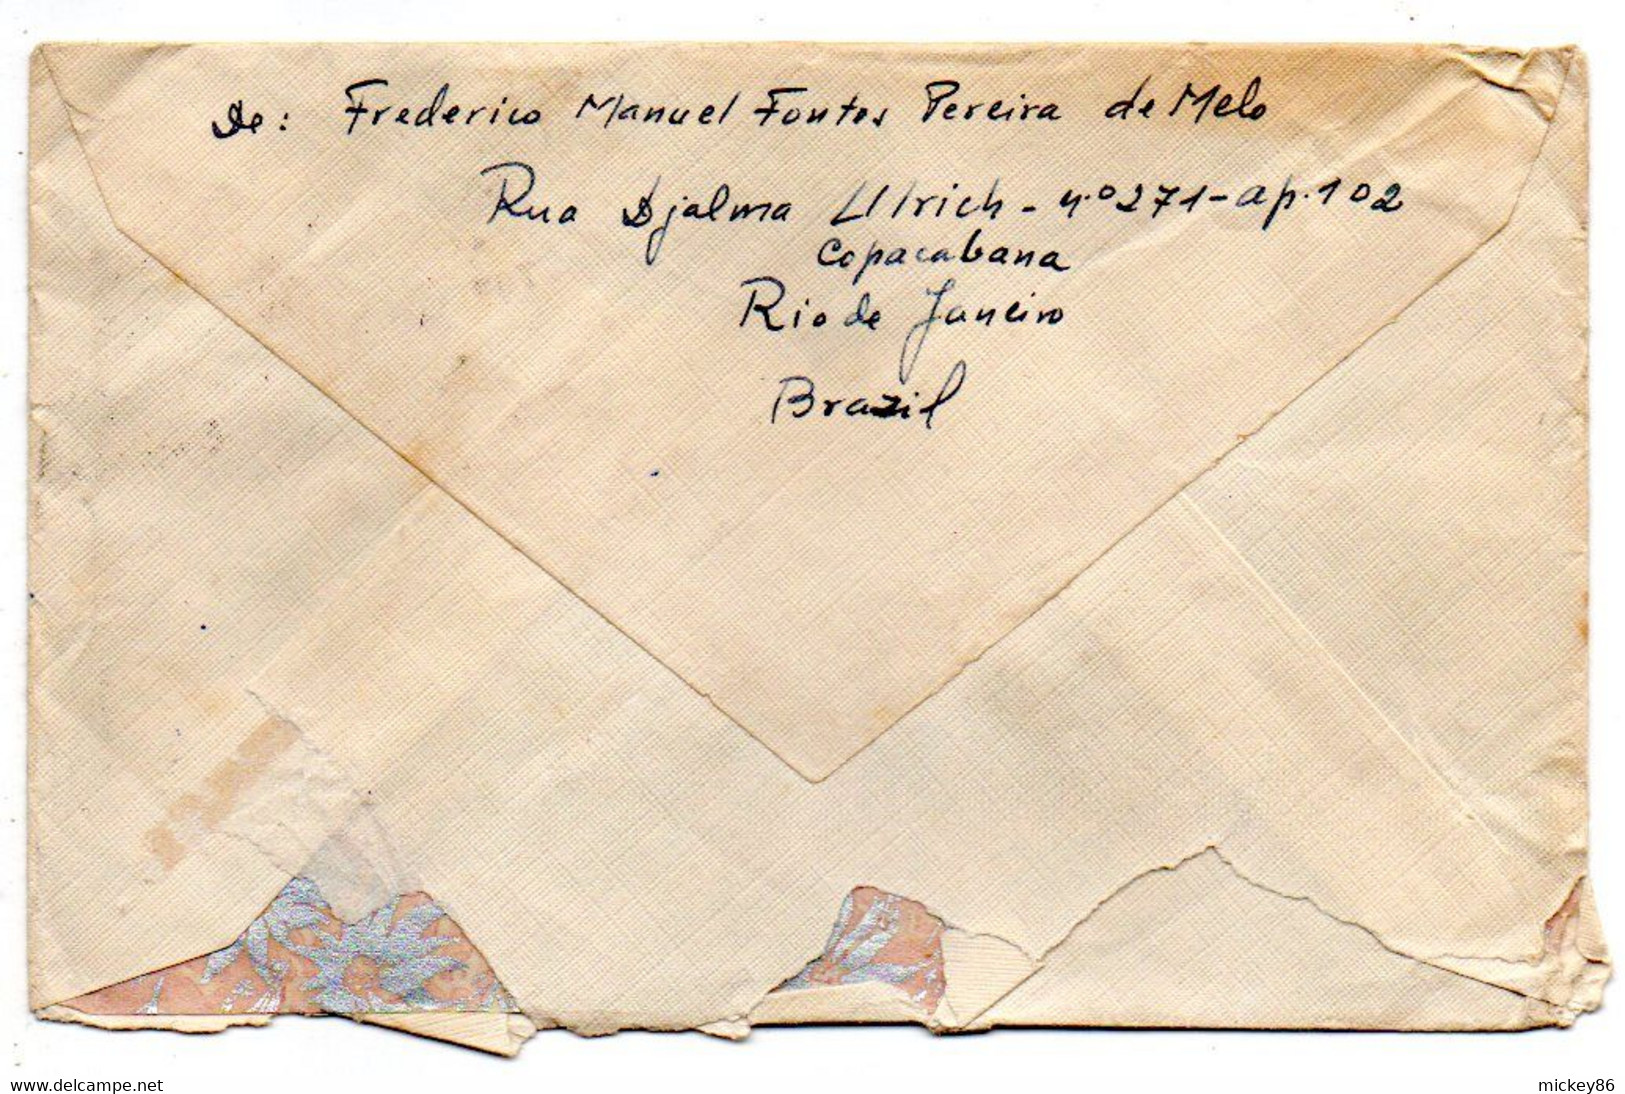 De: Frederico Manuel Fontes Pereira de Melo
Rua Djalma Ulrich - nº 271 - ap. 102
Copacabana
Rio de Janeiro
Brazil
www.delcampe.net
mickey86